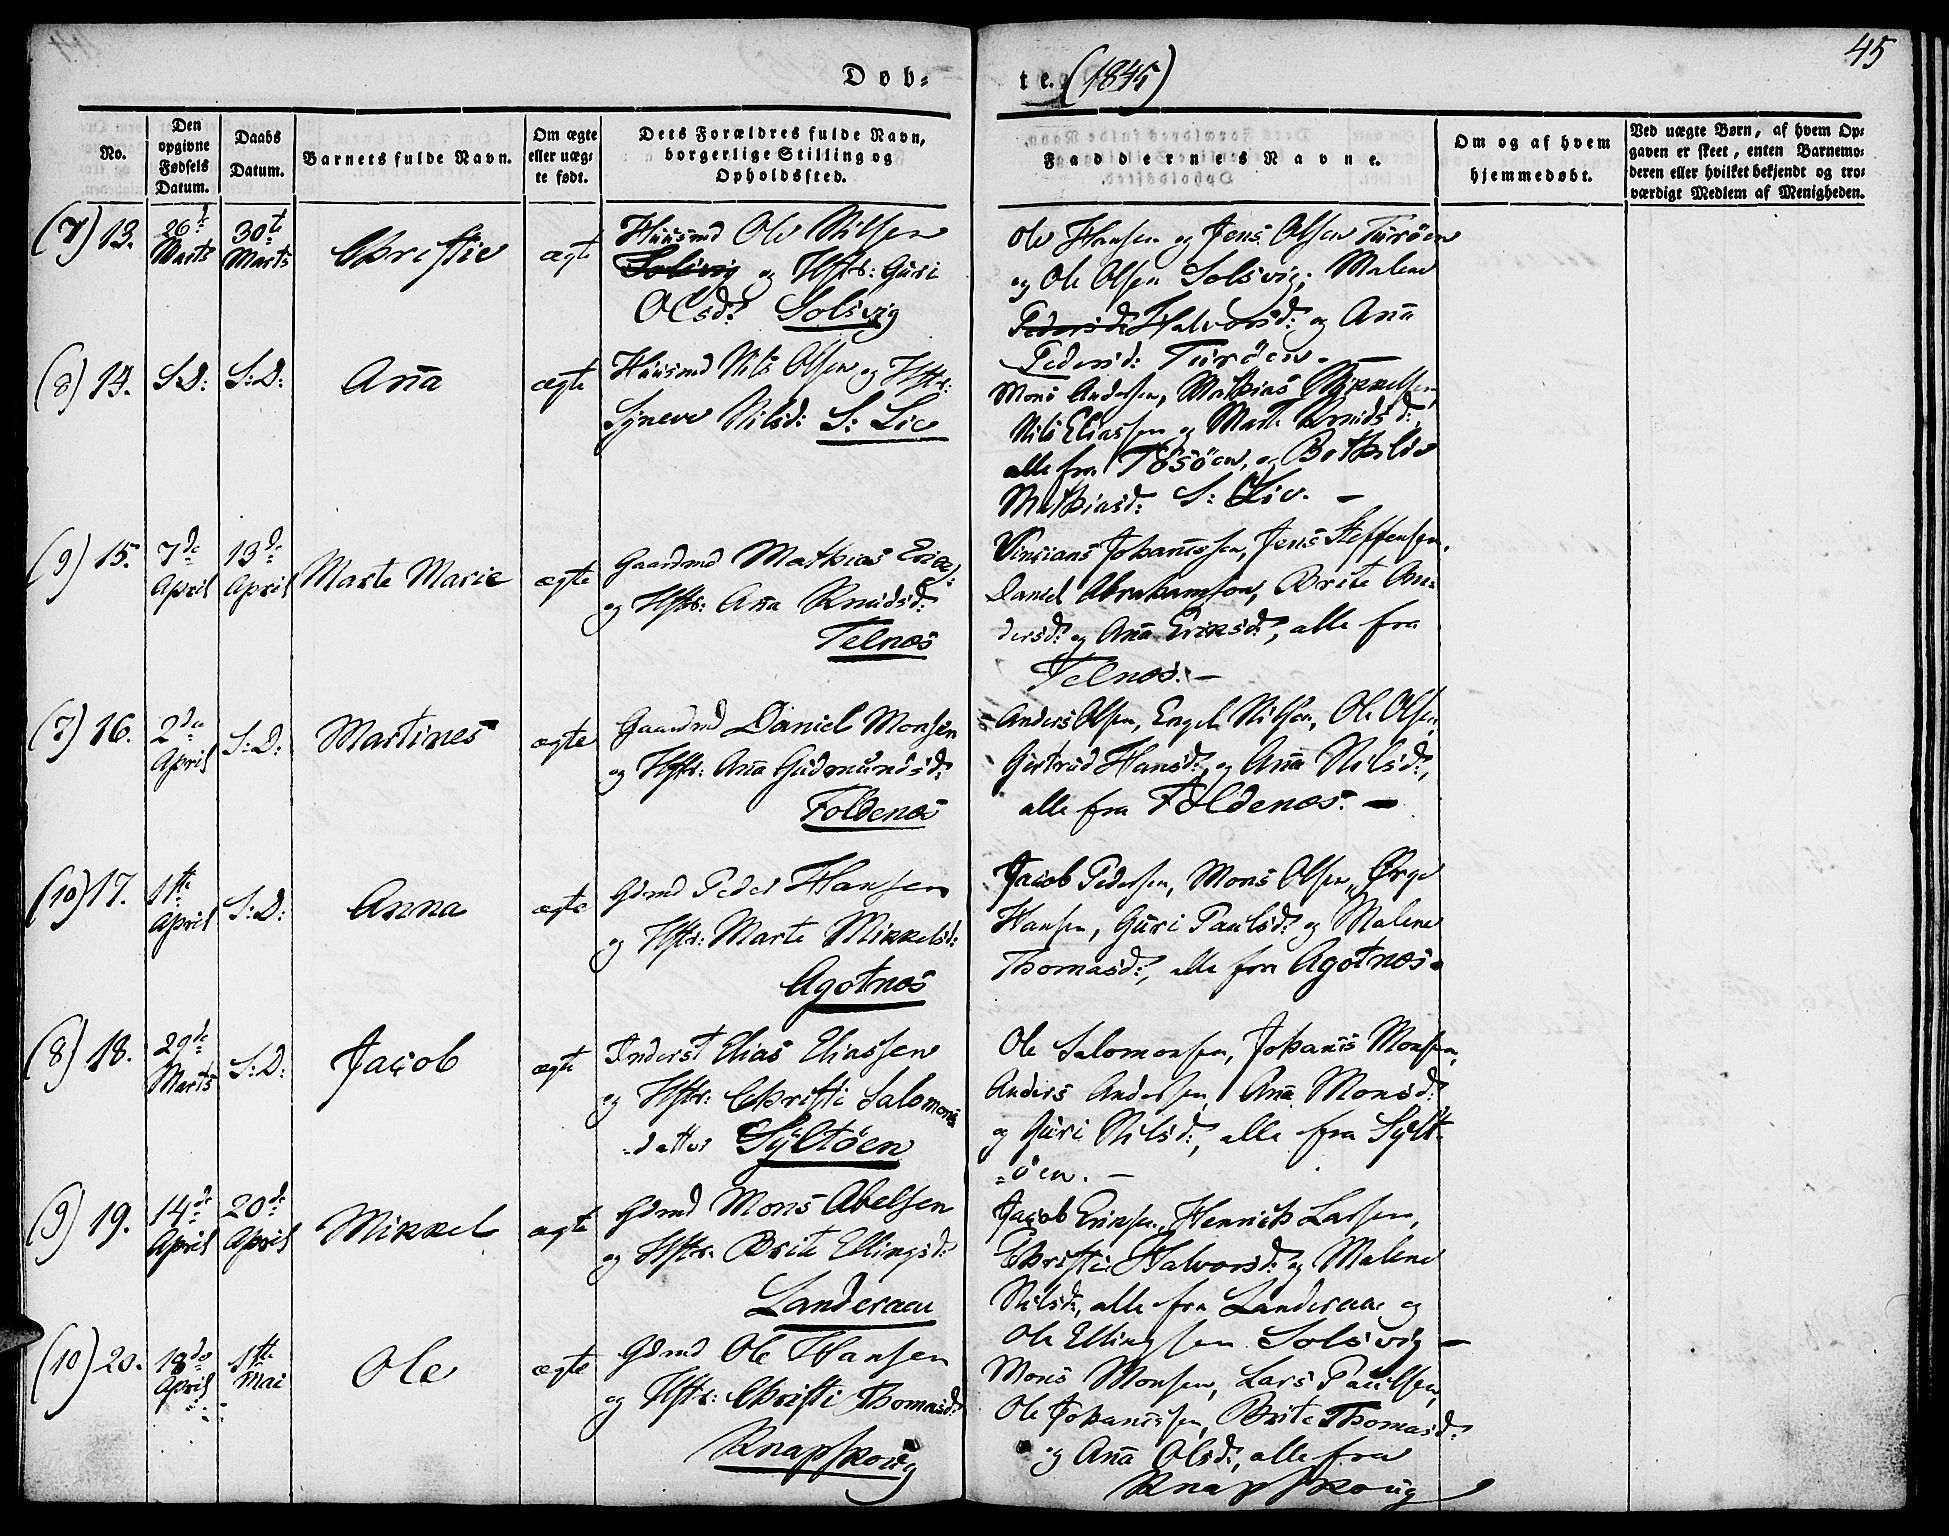 45
Døb-
te. (1845)
No.
Den opgivne Fødsels Datum.
Daabs Datum.
Barnets fulde Navn.
Om ægte eller uæg-te født.
Dets Forældres fulde Navn, borgerlige Stilling og Opholdssted.
Faddernes Navne.
Om og af hvem hjemmedøbt.
Ved uægte Børn, af hvem Op-gaven er skeet, enten Barnemo-deren eller hvilket bekjendt og tro-værdigt Medlem af Menigheden.
(7) 13.
26de Marts
30te Marts
Christie
ægte
Huusmd Ole Nilsen
Solsvig og Hstr: Guri
Olsd: Solsvig
Ole Hansen og Jens Olsen Turøen
og Ole Olsen Solsvig; Malene
Pedersd: Halvorsd: og Aña
Pedersd: Turøen.
(8) 14.
S:D:
S:D:
Aña
ægte
Huusmd Nils Olsen og Hstr:
Syneve Nilsd: S: Lie
Mons Andersen, Mathias Mikkelsen,
Nils Eliassen og Marte Knudsd:,
alle fra Tøsøen, og Bothilde
Mathiasd: S: Lie. -
(9) 15.
7de April
13de April
Marte Marie
ægte
Gaardmd Mathias
og Hstr: Aña Knudsd:
Telnæs
Vinsians Johañssen, Jens Steffensen,
Daniel Abrahamson, Brite An-
dersd: og Aña Eriksd:, alle fra
Telnæs. -
(7) 16.
2den April
S:D:
Martines
ægte
Gaardmd Daniel Monsen
og Hstr: Aña Gudmundsd:
Foldenæs
Anders Olsen, Engel Nilsen, Ole Olsen,
Gjertrud Hansd: og Aña Nilsd:,
alle fra Foldenæs. -
(10) 17.
1ste April
S:D:
Anna
ægte
Gdmd Peder Hansen
og Hstr: Marte Mikkelsd:
Agotnæs
Jacob Pedersen, Mons Olsen, Ørge
Hansen, Guri Paulsd: og Malene
Thomasd:, alle fra Agotnæs.
(8) 18.
29de Marts
S:D:
Jacob
ægte
Inderst Elias Eliassen
og Hstr: Christi Salomons
-datter Syltøen
Ole Salomonsen, Johañs Monsen,
Anders Andersen, Aña Monsd:
og Guri Nilsd:, alle fra Sylt-
-øen. -
(9) 19.
14de April
20de April
Mikkel
ægte
Gdmd Mons Abelsen
og Hstr: Brite Ellingsd:
Landeraae
Jacob Eriksen, Henrich Larsen,
Christie Halvorsd: og Malene
Nilsd:, alle fra Landeraae og
Ole Ellingsen Solsvig -
(10) 20.
18de April
1ste Mai
Ole
ægte
Gdmd Ole Hansen
og Hstr: Christi Thomasd:
Knapskoug
Mons Monsen, Lars Paulsen,
Ole Johañssen, Brite Thomasd:
og Aña Olsd:, alle fra
Knapskoug